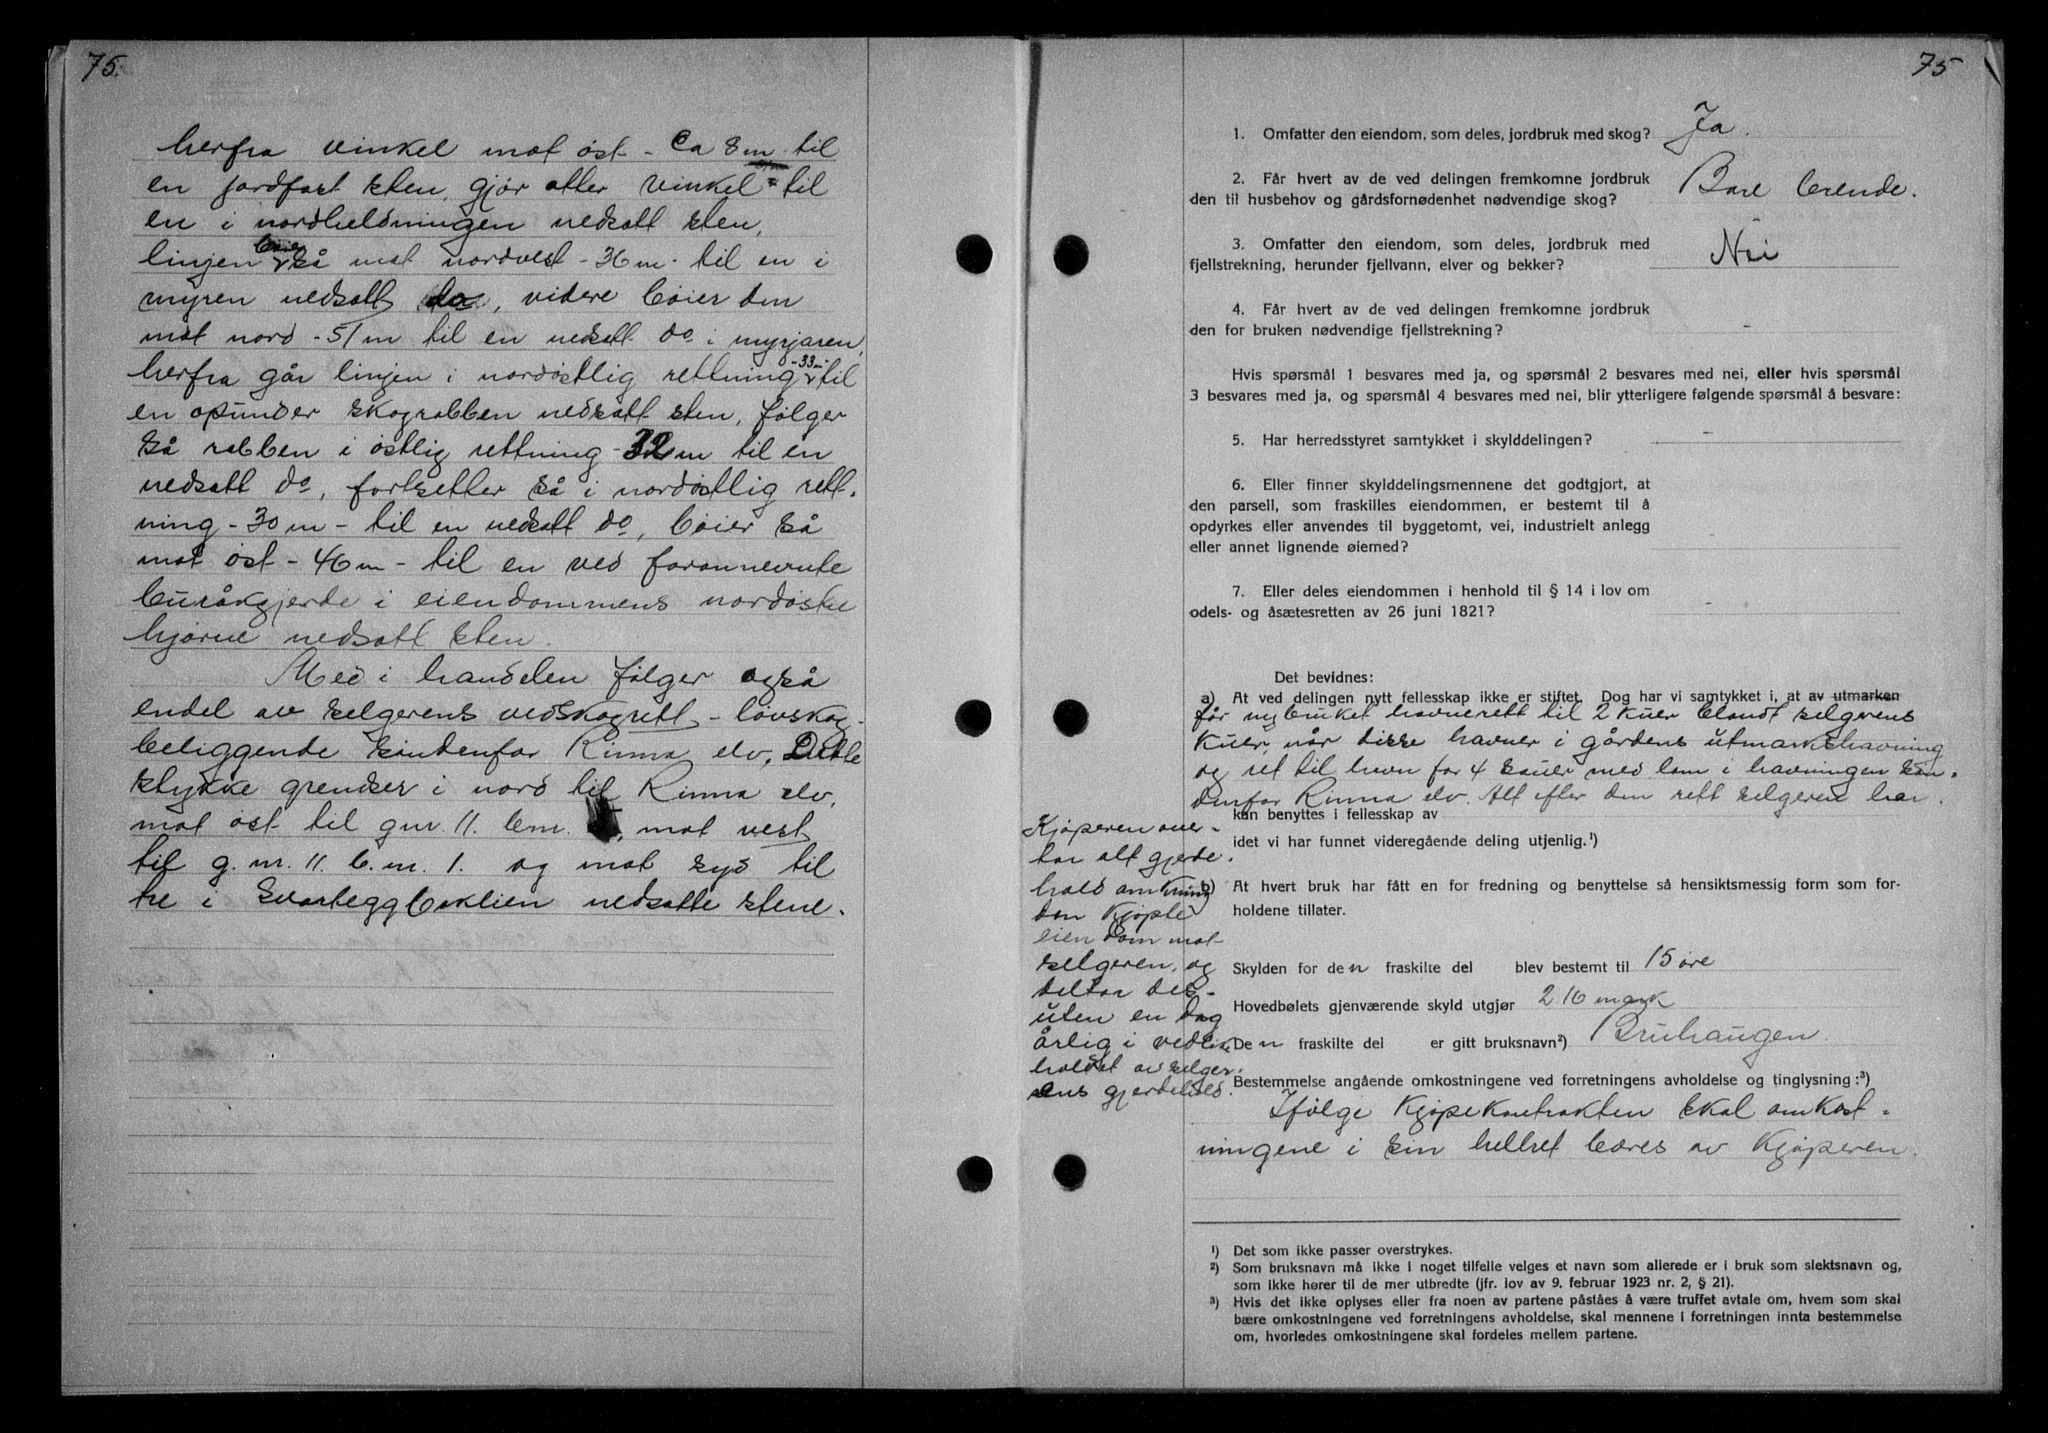 75.
herfra vinkel mot øst - Ca 8 m til
en jordfast sten, gjør atter vinkel til
en i nordheldningen nedsatt sten,
linjen bøier så mot nordvest - 36 m - til en i
myren nedsatt do, videre bøier den
mot nord - 51 m til en nedsatt do i myrjaren,
herfra går linjen i nordøstlig rettning - 33 m - til
en opunder skograbben nedsatt sten, følger
så rabben i østlig rettning - 32 m til en
nedsatt do, fortsetter så i nordøstlig rett-
ning - 30 m - til en nedsatt do, bøier så
mot øst - 46 m - til en ved forannevnte
buråkgjerde i eiendommens nordøstre
hjørne nedsatt sten.
Med i handelen følger også
endel av selgerens vedskogrett - løvskog -
beliggende søndenfor Rinna elv. Dette
stykke grenser i nord til Rinna elv,
mot øst til gnr 11. bnr. , mot vest
til g.nr. 11. b.nr. 1. og mot syd til
tre i Svarteggbaklien nedsatte stene.
75
1. Omfatter den eiendom, som deles, jordbruk med skog? Ja.
2. Får hvert av de ved delingen fremkomne jordbruk
den til husbehov og gårdsfornødenhet nødvendige skog? Bare brende.
3. Omfatter den eiendom, som deles, jordbruk med
fjellstrekning, herunder fjellvann, elver og bekker? Nei
4. Får hvert av de ved delingen fremkomne jordbruk
den for bruken nødvendige fjellstrekning? -
Hvis spørsmål 1 besvares med ja, og spørsmål 2 besvares med nei, eller hvis spørsmål
3 besvares med ja, og spørsmål 4 besvares med nei, blir ytterligere følgende spørsmål å besvare:
5. Har herredsstyret samtykket i skylddelingen? -
6. Eller finner skylddelingsmennene det godtgjort, at
den parsell, som fraskilles eiendommen, er bestemt til å
opdyrkes eller anvendes til byggetomt, vei, industrielt anlegg
eller annet lignende øiemed? -
7. Eller deles eiendommen i henhold til § 14 i lov om
odels- og åsætesretten av 26 juni 1821? -
Det bevidnes:
a) At ved delingen nytt fellesskap ikke er stiftet. Dog har vi samtykket i, at av utmarken
får nybruket havnerett til 2 kuer blandt selgerens
kuer, når disse havner i gårdens utmarkshavning
og ret til havn for 4 sauer med lam i havningen søn-
denfor Rinna elv. Alt efter den rett selgeren har.
kan benyttes i fellesskap av
idet vi har funnet videregående deling utjenlig.¹)
Kjøperen over-
tar alt gjerde-
hold omkring
den kjøpte
eiendom mot
selgeren, og
deltar des-
uten en dag
årlig i vedlike
holdet av selger-
ens gjerdehold.
b) At hvert bruk har fått en for fredning og benyttelse så hensiktsmessig form som for-
holdene tillater.
Skylden for den fraskilte del blev bestemt til 15 øre
Hovedbølets gjenværende skyld utgjør 2.16 mark
Den fraskilte del er gitt bruksnavn²) Bruhaugen.
Bestemmelse angående omkostningene ved forretningens avholdelse og tinglysning:³)
Ifølge kjøpekontrakten skal omkost-
ningene i sin helhet bæres av kjøperen.
¹) Det som ikke passer overstrykes.
²) Som bruksnavn må ikke i noget tilfelle velges et navn som allerede er i bruk som slektsnavn og,
som ikke hører til de mer utbredte (jfr. lov av 9. februar 1923 nr. 2, § 21).
³) Hvis det ikke oplyses eller fra noen av partene påståes å være truffet avtale om, hvem som skal
bære omkostningene ved forretningens avholdelse, skal mennene i forretningen innta bestemmelse
om, hvorledes omkostningene skal fordeles mellem partene.